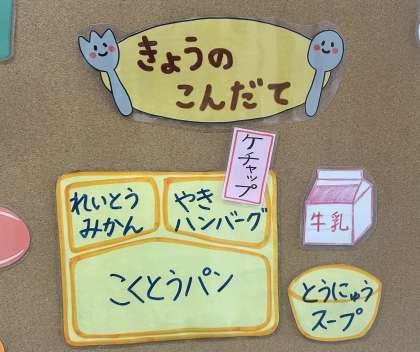 きょうの
こんだて
ケチャップ
れいとう
みかん
やき
ハンバーグ
こくとうパン
牛乳
とうにゅう
スープ